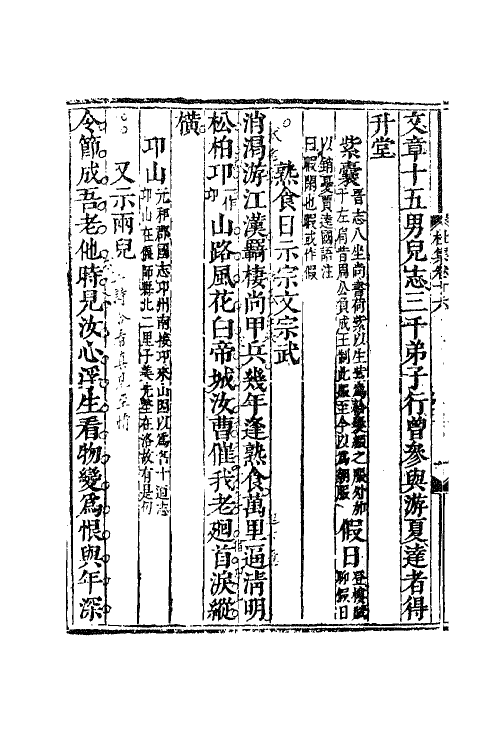 文章十五男兒志三千弟子行曾參與游夏達者得
升堂
紫囊
晉志八坐尚書荷紫以生紫爲袷囊綴之服外加
于左肩昔周公負成王制此服至今以爲朝服
假日
登樓賦
聊假日
以銷憂賈逵國語注
曰暇閒也暇或作假
熟食日示宗文宗武
消渴游江漢羈棲尚甲兵幾年逢熟食萬里逼清明
松柏邛一作卭山路風花白帝城汝曹催我老廻首淚縱
橫
邛山
元和郡國志邛州南接邛來山因以爲名十道志
邙山在偃師縣北二里子美先塋在洛故有是句
又示兩兒
令節成吾老他時見汝心浮生看物變爲恨與年深